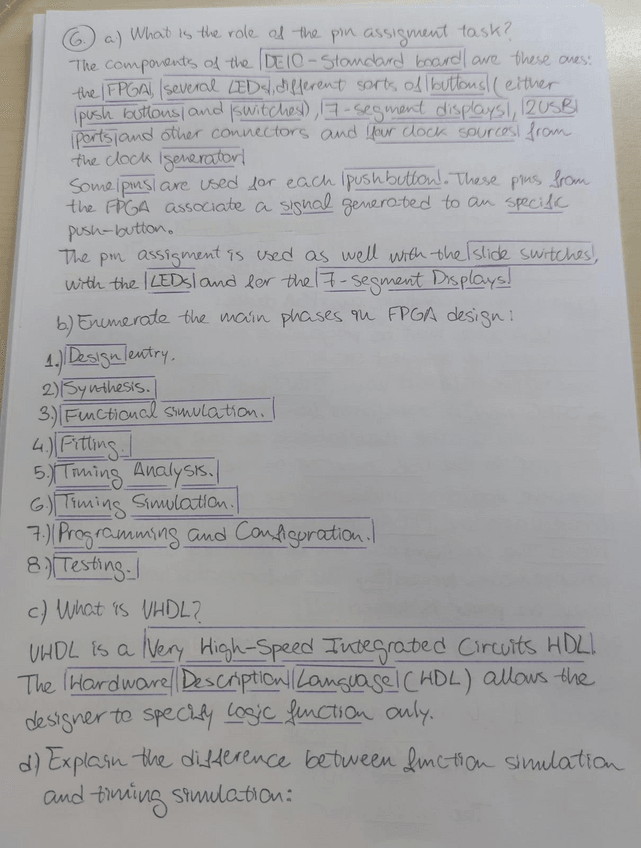 6. a) What is the role of the pin assigment task?
The components of the DE10-Standard board are these ones:
the FPGA, several LEDs, different sorts of buttons (either
push buttons and switches), 7-segment displays, 2 USB
ports and other connectors and four clock sources from
the clock generator
Some pins are used for each pushbutton. These pins from
the FPGA associate a signal generated to an specific
push-button.
The pin assigment is used as well with the slide switches,
with the LEDs and for the 7-segment Displays.
b) Enumerate the main phases in FPGA design:
1.) Design entry.
2) Synthesis.
3.) Functional simulation.
4.) Fitting.
5.) Timing Analysis.
6.) Timing Simulation.
7.) Programming and Configuration.
8.) Testing.
c) What is VHDL?
VHDL is a Very High-Speed Integrated Circuits HDL.
The Hardware Description Language (HDL) allows the
designer to specify logic function only.
d) Explain the difference between function simulation
and timing simulation: